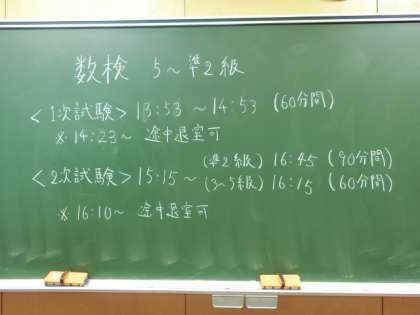 数検 5～準2級
<1次試験> 13:53 ～ 14:53 (60分間)
※ 14:23～ 途中退室可
<2次試験> 15:15 ～ (準2級) 16:45 (90分間)
(3～5級) 16:15 (60分間)
※ 16:10～ 途中退室可